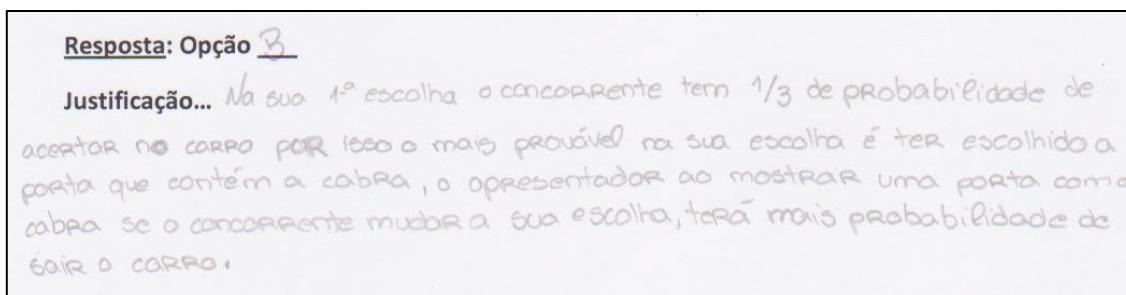 Resposta: Opção B
Justificação... Na sua 1ª escolha o concorrente tem 1/3 de probabilidade de
acertar no carro por isso o mais provável na sua escolha é ter escolhido a
porta que contém a cabra, o apresentador ao mostrar uma porta com a
cabra se o concorrente mudar a sua escolha, terá mais probabilidade de
sair o carro.